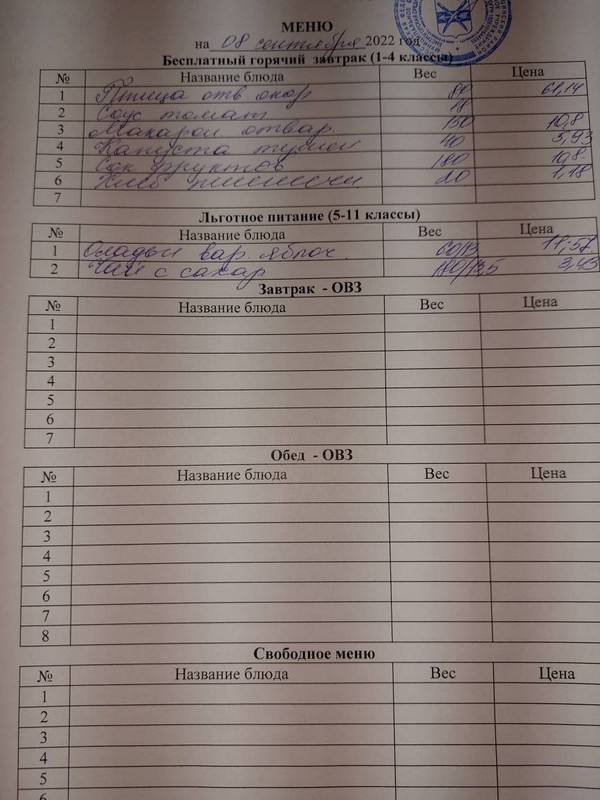 МЕНЮ
на 08 сентября 2022 год
Бесплатный горячий завтрак (1-4 классы)
№ Название блюда Вес Цена
1 Птица отв окор 80 61,14
2 Соус томат 18
3 Макарон отвар. 150 10,8
4 Капуста тушен 40 5,93
5 Сок фруктов 180 10,8
6 Хлеб пшеничн 20 1,18
7
Льготное питание (5-11 классы)
№ Название блюда Вес Цена
1 Оладьи вар. яблоч. 60/13 11,57
2 Чай с сахар 180/13,5 3,43
Завтрак - ОВЗ
№ Название блюда Вес Цена
1
2
3
4
5
6
7
Обед - ОВЗ
№ Название блюда Вес Цена
1
2
3
4
5
6
7
8
Свободное меню
№ Название блюда Вес Цена
1
2
3
4
5
6